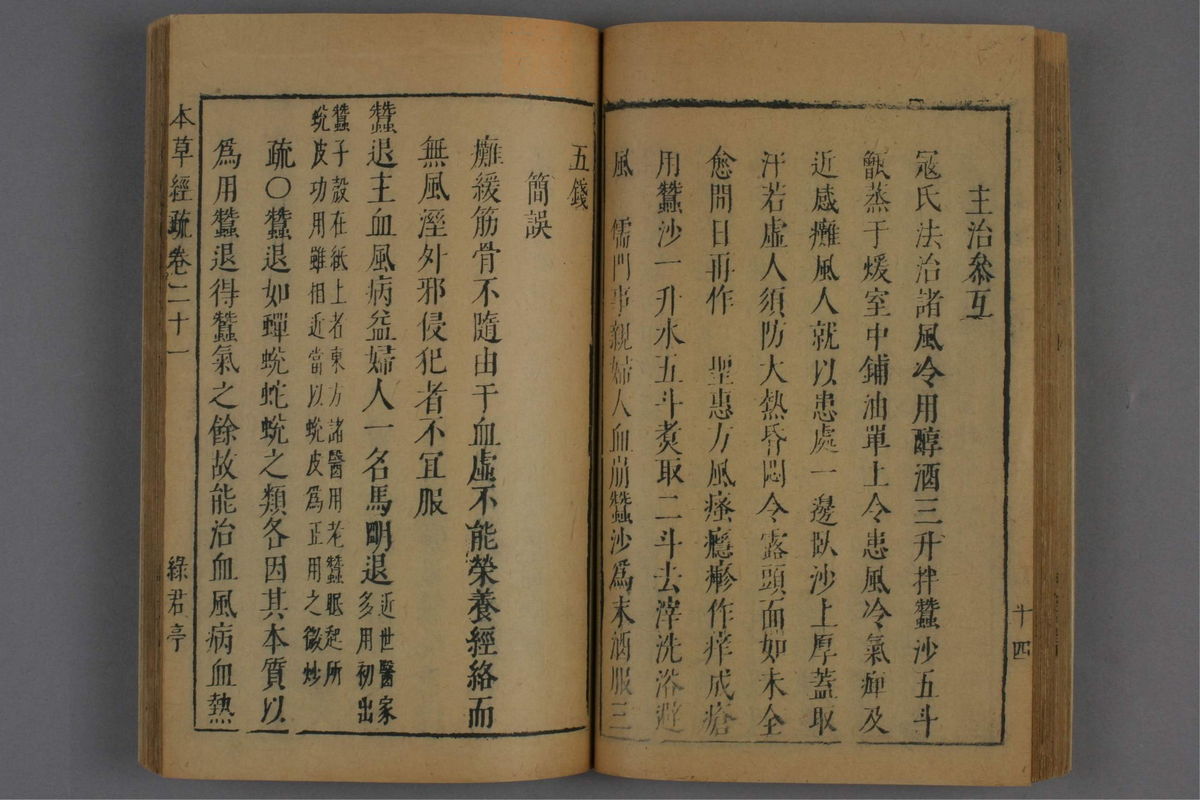 主治叅互
寇氏法治諸風冷用醇酒三升拌蠶沙五斗
甑蒸于煖室中鋪油單上令患風冷氣痺及
近感癱風人就以患處一邊臥沙上厚蓋取
汗若虛人須防大熱昏悶令露頭面如未全
愈間日再作　聖惠方風瘙癮疹作痒成瘡
用蠶沙一升水五斗煑取二斗去滓洗浴避
風　儒門事親婦人血崩蠶沙爲末酒服三
十四
五錢
簡誤
癱緩筋骨不隨由于血虛不能榮養經絡而
無風溼外邪侵犯者不宜服
蠶退主血風病益婦人一名馬明退近世醫家多用初出
蠶子殼在紙上者東方諸醫用老蠶眠起所
蛻皮功用雖相近當以蛻皮爲正用之微炒
疏〇蠶退如蟬蛻蛇蛻之類各因其本質以
爲用蠶退得蠶氣之餘故能治血風病血熱
本草經疏卷二十一
綠君亭